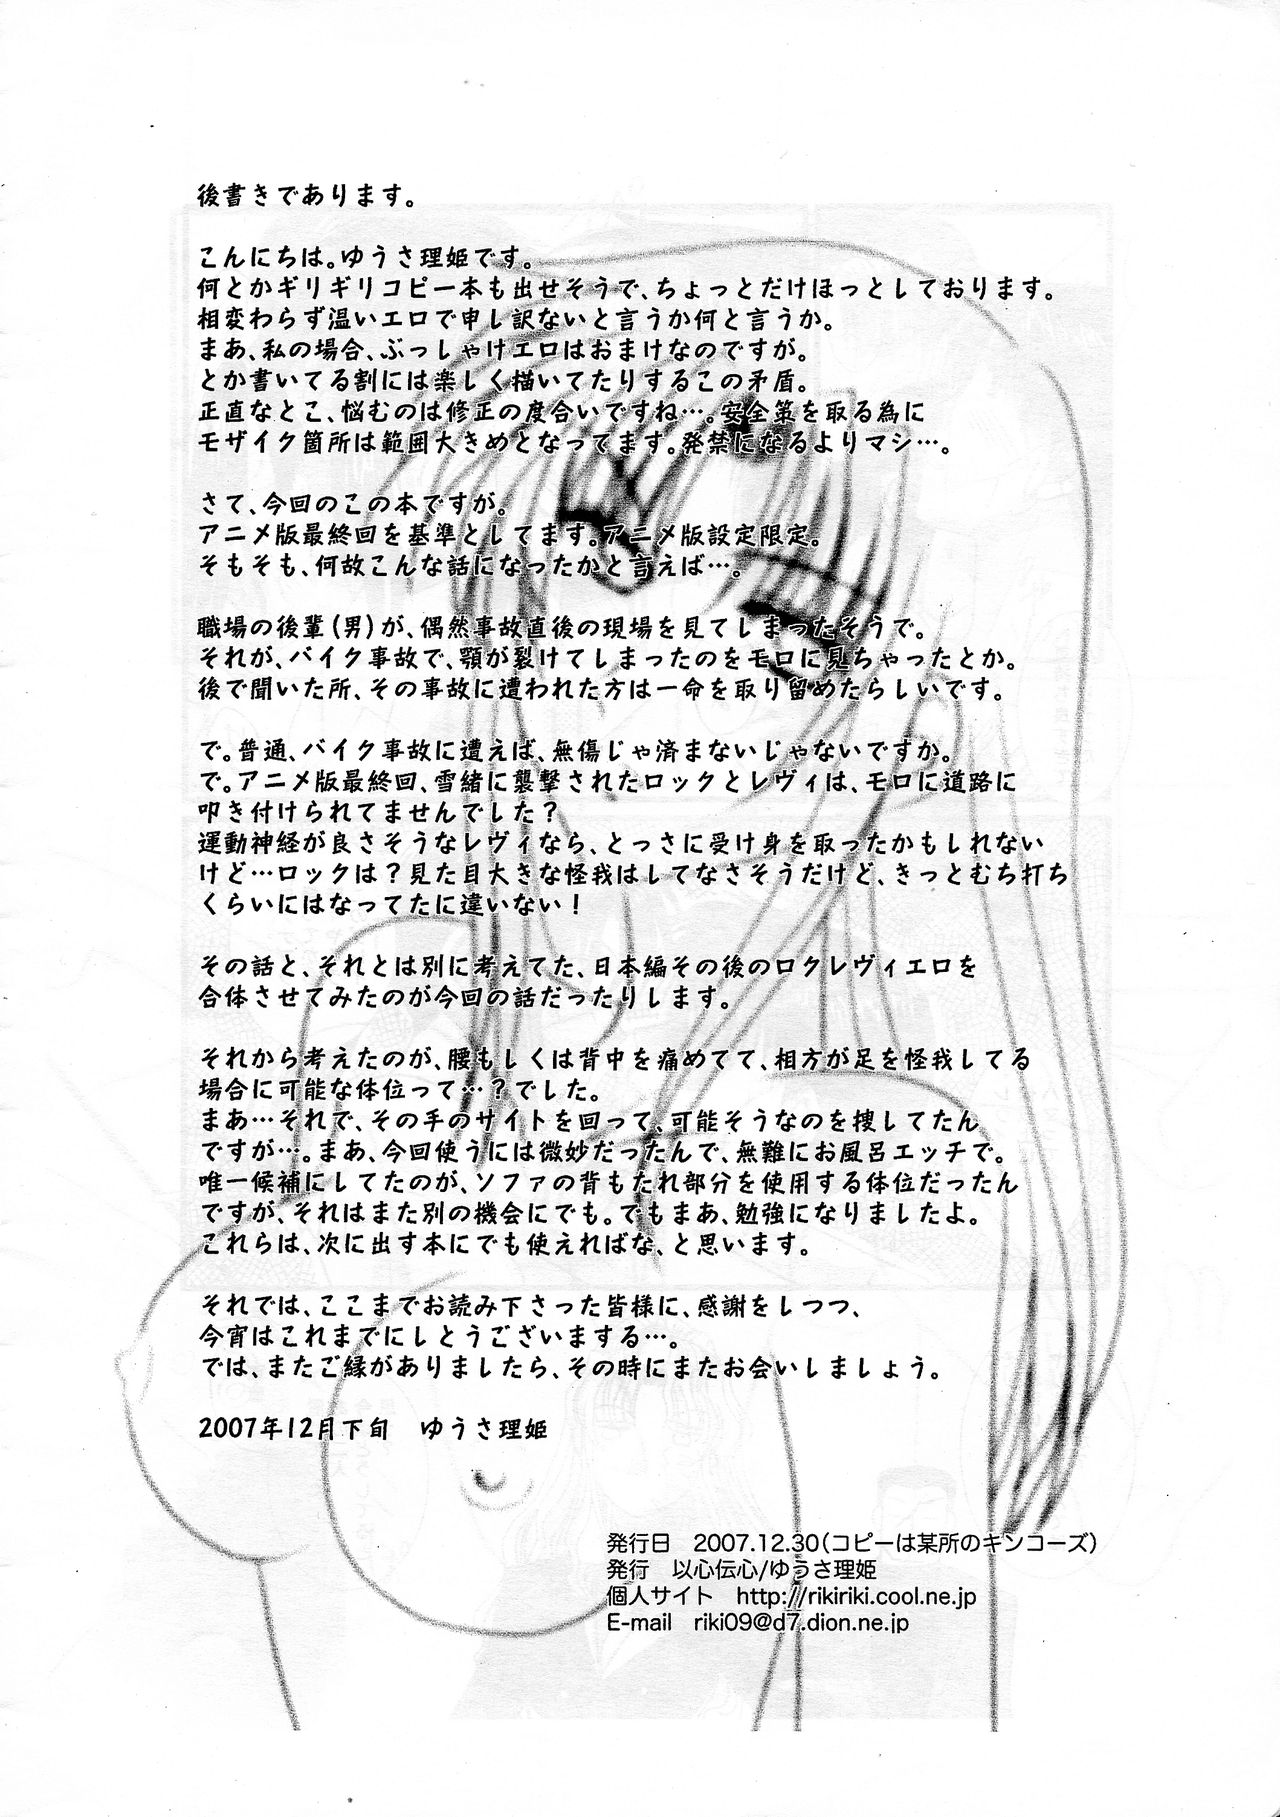 後書きであります。
こんにちは。ゆうさ理姫です。
何とかギリギリコピー本も出せそうで、ちょっとだけほっとしております。
相変わらず温いエロで申し訳ないと言うか何と言うか。
まあ、私の場合、ぶっしゃけエロはおまけなのですが。
とか書いてる割には楽しく描いてたりするこの矛盾。
正直なとこ、悩むのは修正の度合いですね…。安全策を取る為に
モザイク箇所は範囲大きめとなってます。発禁になるよりマシ…。
さて、今回のこの本ですが。
アニメ版最終回を基準としてます。アニメ版設定限定。
そもそも、何故こんな話になったかと言えば…。
職場の後輩(男)が、偶然事故直後の現場を見てしまったそうで。
それが、バイク事故で、顎が裂けてしまったのをモロに見ちゃったとか。
後で聞いた所、その事故に遭われた方は一命を取り留めたらしいです。
で。普通、バイク事故に遭えば、無傷じゃ済まないじゃないですか。
で。アニメ版最終回、雪緒に襲撃されたロックとレヴィは、モロに道路に
叩き付けられてませんでした？
運動神経が良さそうなレヴィなら、とっさに受け身を取ったかもしれない
けど…ロックは？見た目大きな怪我はしてなさそうだけど、きっとむち打ち
くらいにはなってたに違いない！
その話と、それとは別に考えてた、日本編その後のロクレヴィエロを
合体させてみたのが今回の話だったりします。
それから考えたのが、腰もしくは背中を痛めてて、相方が足を怪我してる
場合に可能な体位って…？でした。
まあ…それで、その手のサイトを回って、可能そうなのを捜してたん
ですが…。まあ、今回使うには微妙だったんで、無難にお風呂エッチで。
唯一候補にしてたのが、ソファの背もたれ部分を使用する体位だったん
ですが、それはまた別の機会にでも。でもまあ、勉強になりましたよ。
これらは、次に出す本にでも使えればな、と思います。
それでは、ここまでお読み下さった皆様に、感謝をしつつ、
今宵はこれまでにしとうございまする…。
では、またご縁がありましたら、その時にまたお会いしましょう。
2007年12月下旬　ゆうさ理姫
発行日　2007.12.30(コピーは某所のキンコーズ)
発行　以心伝心/ゆうさ理姫
個人サイト　http://rikiriki.cool.ne.jp
E-mail　riki09@d7.dion.ne.jp